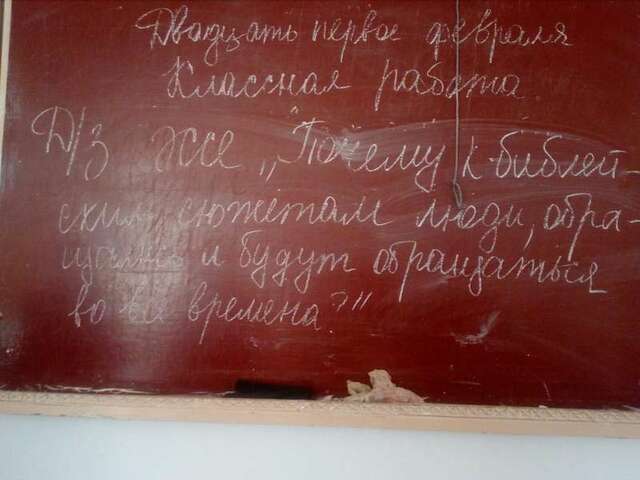 Двадцать первое февраля
Классная работа
Д/з Эссе „Почему к библей-
ским сюжетам люди обра-
щались и будут обращаться
во все времена?"